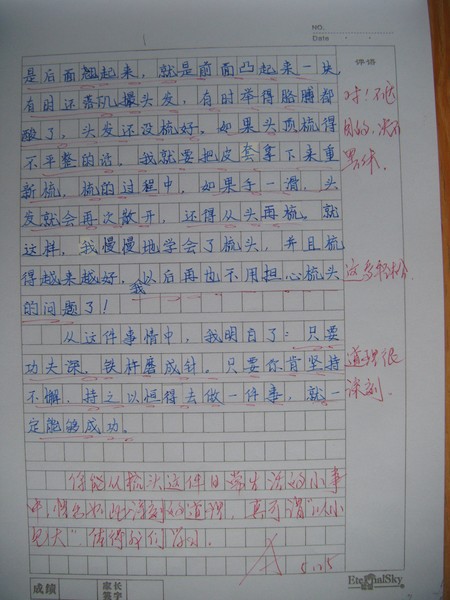 NO.
Date
评语
是后面翘起来，就是前面凸起来一块，
有时还靠乱撮头发，有时举得胳膊都
酸了，头发还没梳好。如果头顶梳得
不平整的话，我就要把皮套拿下来重
新梳，梳的过程中，如果手一滑，头
发就会再次散开，还得从头再梳。就
这样，我慢慢地学会了梳头，并且梳
得越来越好，我以后再也不用担心梳头
的问题了！
从这件事情中，我明白了：只要
功夫深，铁杵磨成针。只要你肯坚持
不懈，持之以恒得去做一件事，就一
定能够成功。
对！不达
目的，决不
罢休
这多轻松
道理很
深刻
你能从梳头这件日常生活的小事
中，悟出如此深刻的道理，真可谓“以小
见大”，值得我们学习。
5.15
成绩
家长
签字
EternalSky